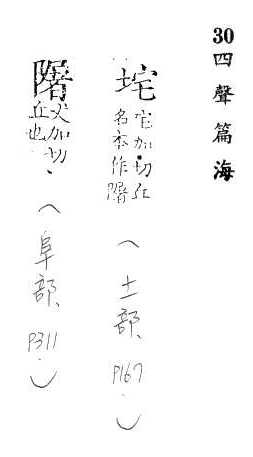 30 四聲篇海
垞
宅加切丘
名本作
(土部、P167.)
丈加切.
丘也
(阜部、P311.)